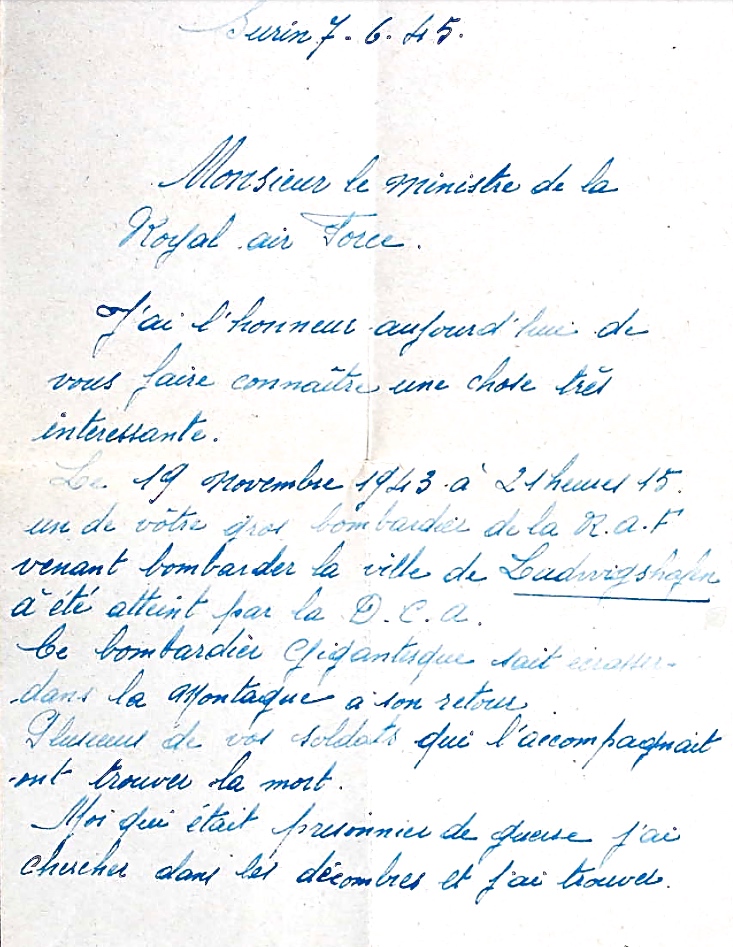 Surin 7. 6. 45.
Monsieur le Ministre de la
Royal air Force.
J'ai l'honneur aujourd'hui de
vous faire connaître une chose très
intéressante.
Le 19 Novembre 1943 à 21 heures 15.
un de vôtre gros bombardier de la R.a.F
venant bombarder la ville de Ludwigshafen
à été atteint par la D.C.A.
Ce bombardier Gigantesque sait écrasser
dans la Montagne a son retour
Plusieurs de vos soldats qui l'accompagnait
ont trouver la mort.
Moi qui était prisonnier de guerre j'ai
chercher dans les décombres et j'ai trouver.